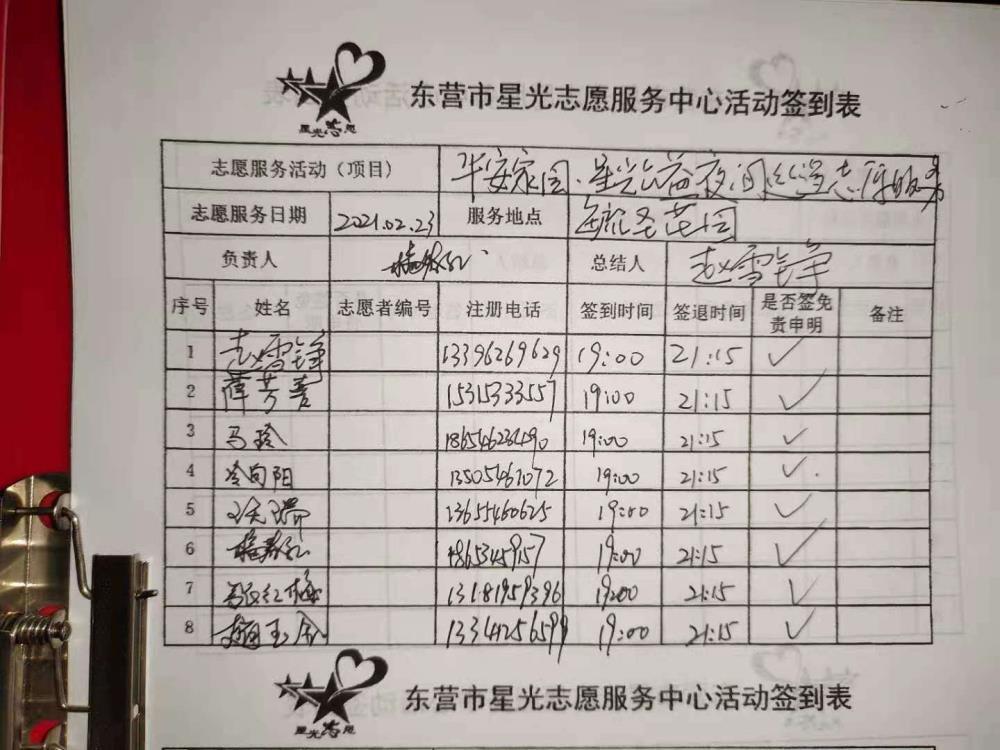 星光志愿
东营市星光志愿服务中心活动签到表
志愿服务活动（项目） 平安家园·星光公益夜间巡逻志愿服务
志愿服务日期 2021.02.23 服务地点
负责人 总结人 赵雪铮
序号 姓名 志愿者编号 注册电话 签到时间 签退时间 是否签免责申明 备注
1 赵雪铮 13396269629 19:00 21:15 ✓
2 薛芳喜 15315333557 19:00 21:15 ✓
3 马玲 19:00 21:15 ✓
4 冷向阳 13505461072 19:00 21:15 ✓
5 13655460625 19:00 21:15 ✓
6 19:00 21:15 ✓
7 红梅 13181959396 19:00 21:15 ✓
8 19:00 21:15 ✓
星光志愿
东营市星光志愿服务中心活动签到表